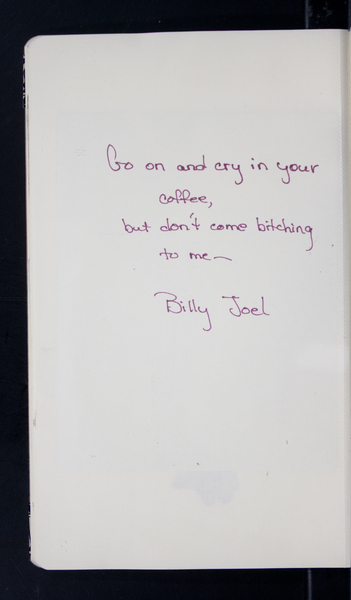 Go on and cry in your
coffee,
but don't come bitching
to me~
Billy Joel